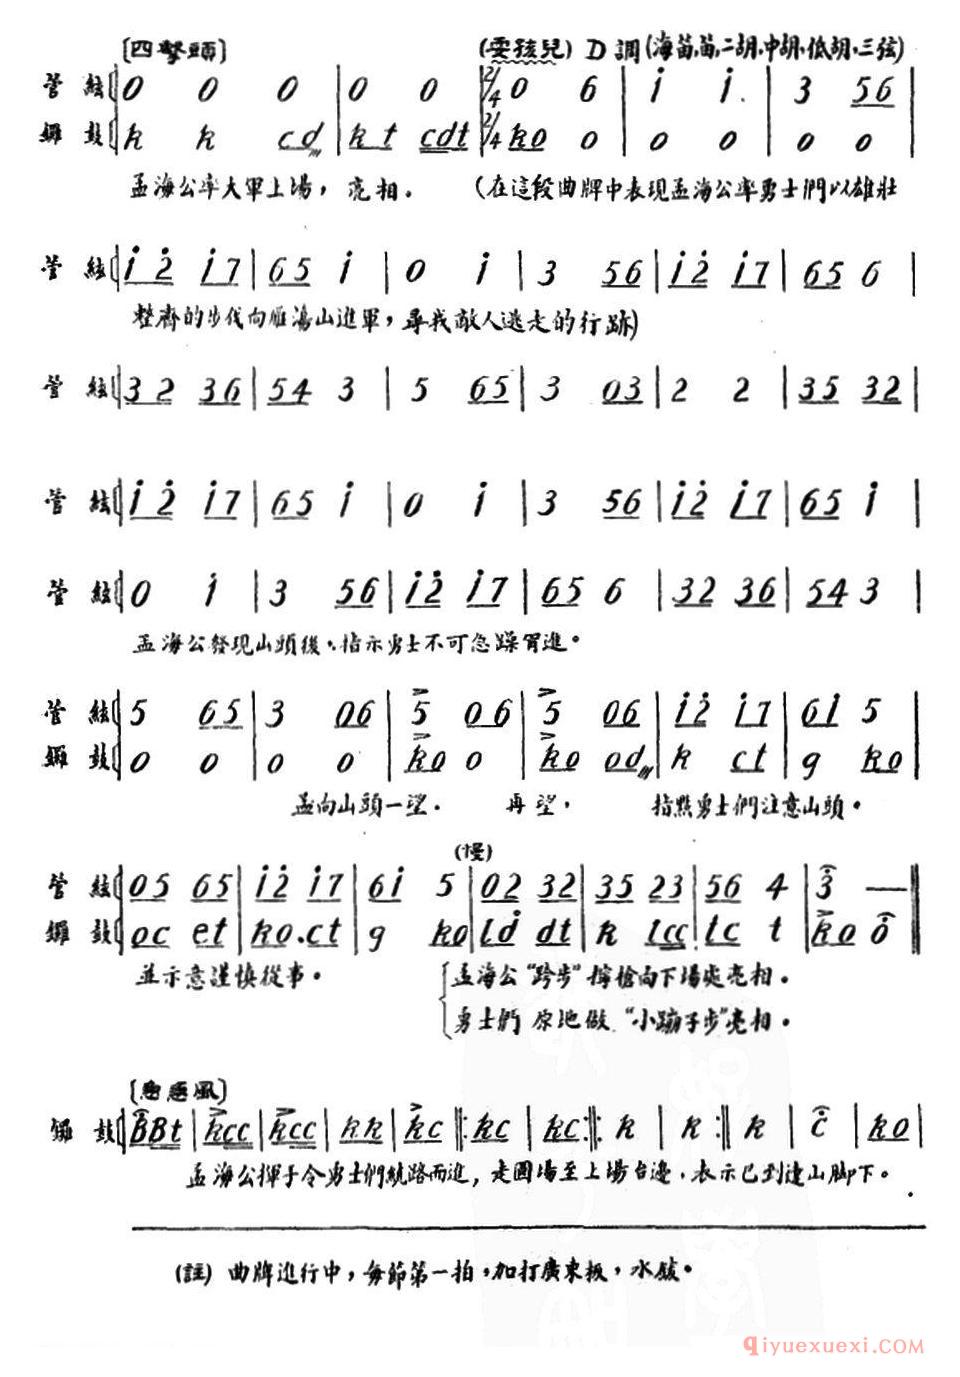 〔四擊頭〕 (耍孩兒) D調(海笛,笛,二胡,中胡,低胡,三弦)
管絃 0 0 0 | 0 0 | 2/4 0 6 | i i. | 3 56 |
鑼鼓 k k cd | kt cdt | 2/4 ko o | o o | o o |
孟海公率大軍上場，亮相． (在這段曲牌中表現孟海公率勇士們以雄壯
管絃 i2 i7 | 65 i | 0 i | 3 56 | i2 i7 | 65 6 |
整齊的步伐向雁蕩山進軍，尋找敵人逃走的行跡)
管絃 32 36 | 54 3 | 5 65 | 3 03 | 2 2 | 35 32 |
管絃 i2 i7 | 65 i | 0 i | 3 56 | i2 i7 | 65 i |
管絃 0 i | 3 56 | i2 i7 | 65 6 | 32 36 | 54 3 |
孟海公發現山頭後，指示勇士不可急躁冒進。
管絃 5 65 | 3 06 | 5 06 | 5 06 | i2 i7 | 6i 5 |
鑼鼓 o o | o o | ko o | ko od | k ct | g ko |
孟向山頭一望． 再望， 指點勇士們注意山頭。
(慢)
管絃 05 65 | i2 i7 | 6i 5 | 02 32 | 35 23 | 56 4 | 3 — ‖
鑼鼓 oc et | ko.ct | g ko | ld dt | k lcc | tc t | ko o ‖
並示意謹慎從事。 孟海公“跨步”擰槍向下場處亮相。
勇士們 原地做“小蹦子步”亮相。
〔急急風〕
鑼鼓 BBt | kcc | kcc | kk | kc |: kc | kc :|: k | k :| k | c | ko |
孟海公揮手令勇士們繞路而進，走圓場至上場台邊．表示已到達山脚下。
(註) 曲牌進行中，每節第一拍，加打廣東板，水鈸。
qiyuexuexi.com